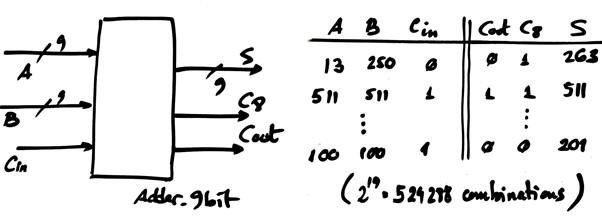 A B Cin Cout C8 S
13 250 0 0 1 263
511 511 1 1 1 511
⋮ ⋮
100 100 1 0 0 201
(2^19 = 524288 combinations)
A 9
B 9
Cin
S 9
C8
Cout
Adder_9bit